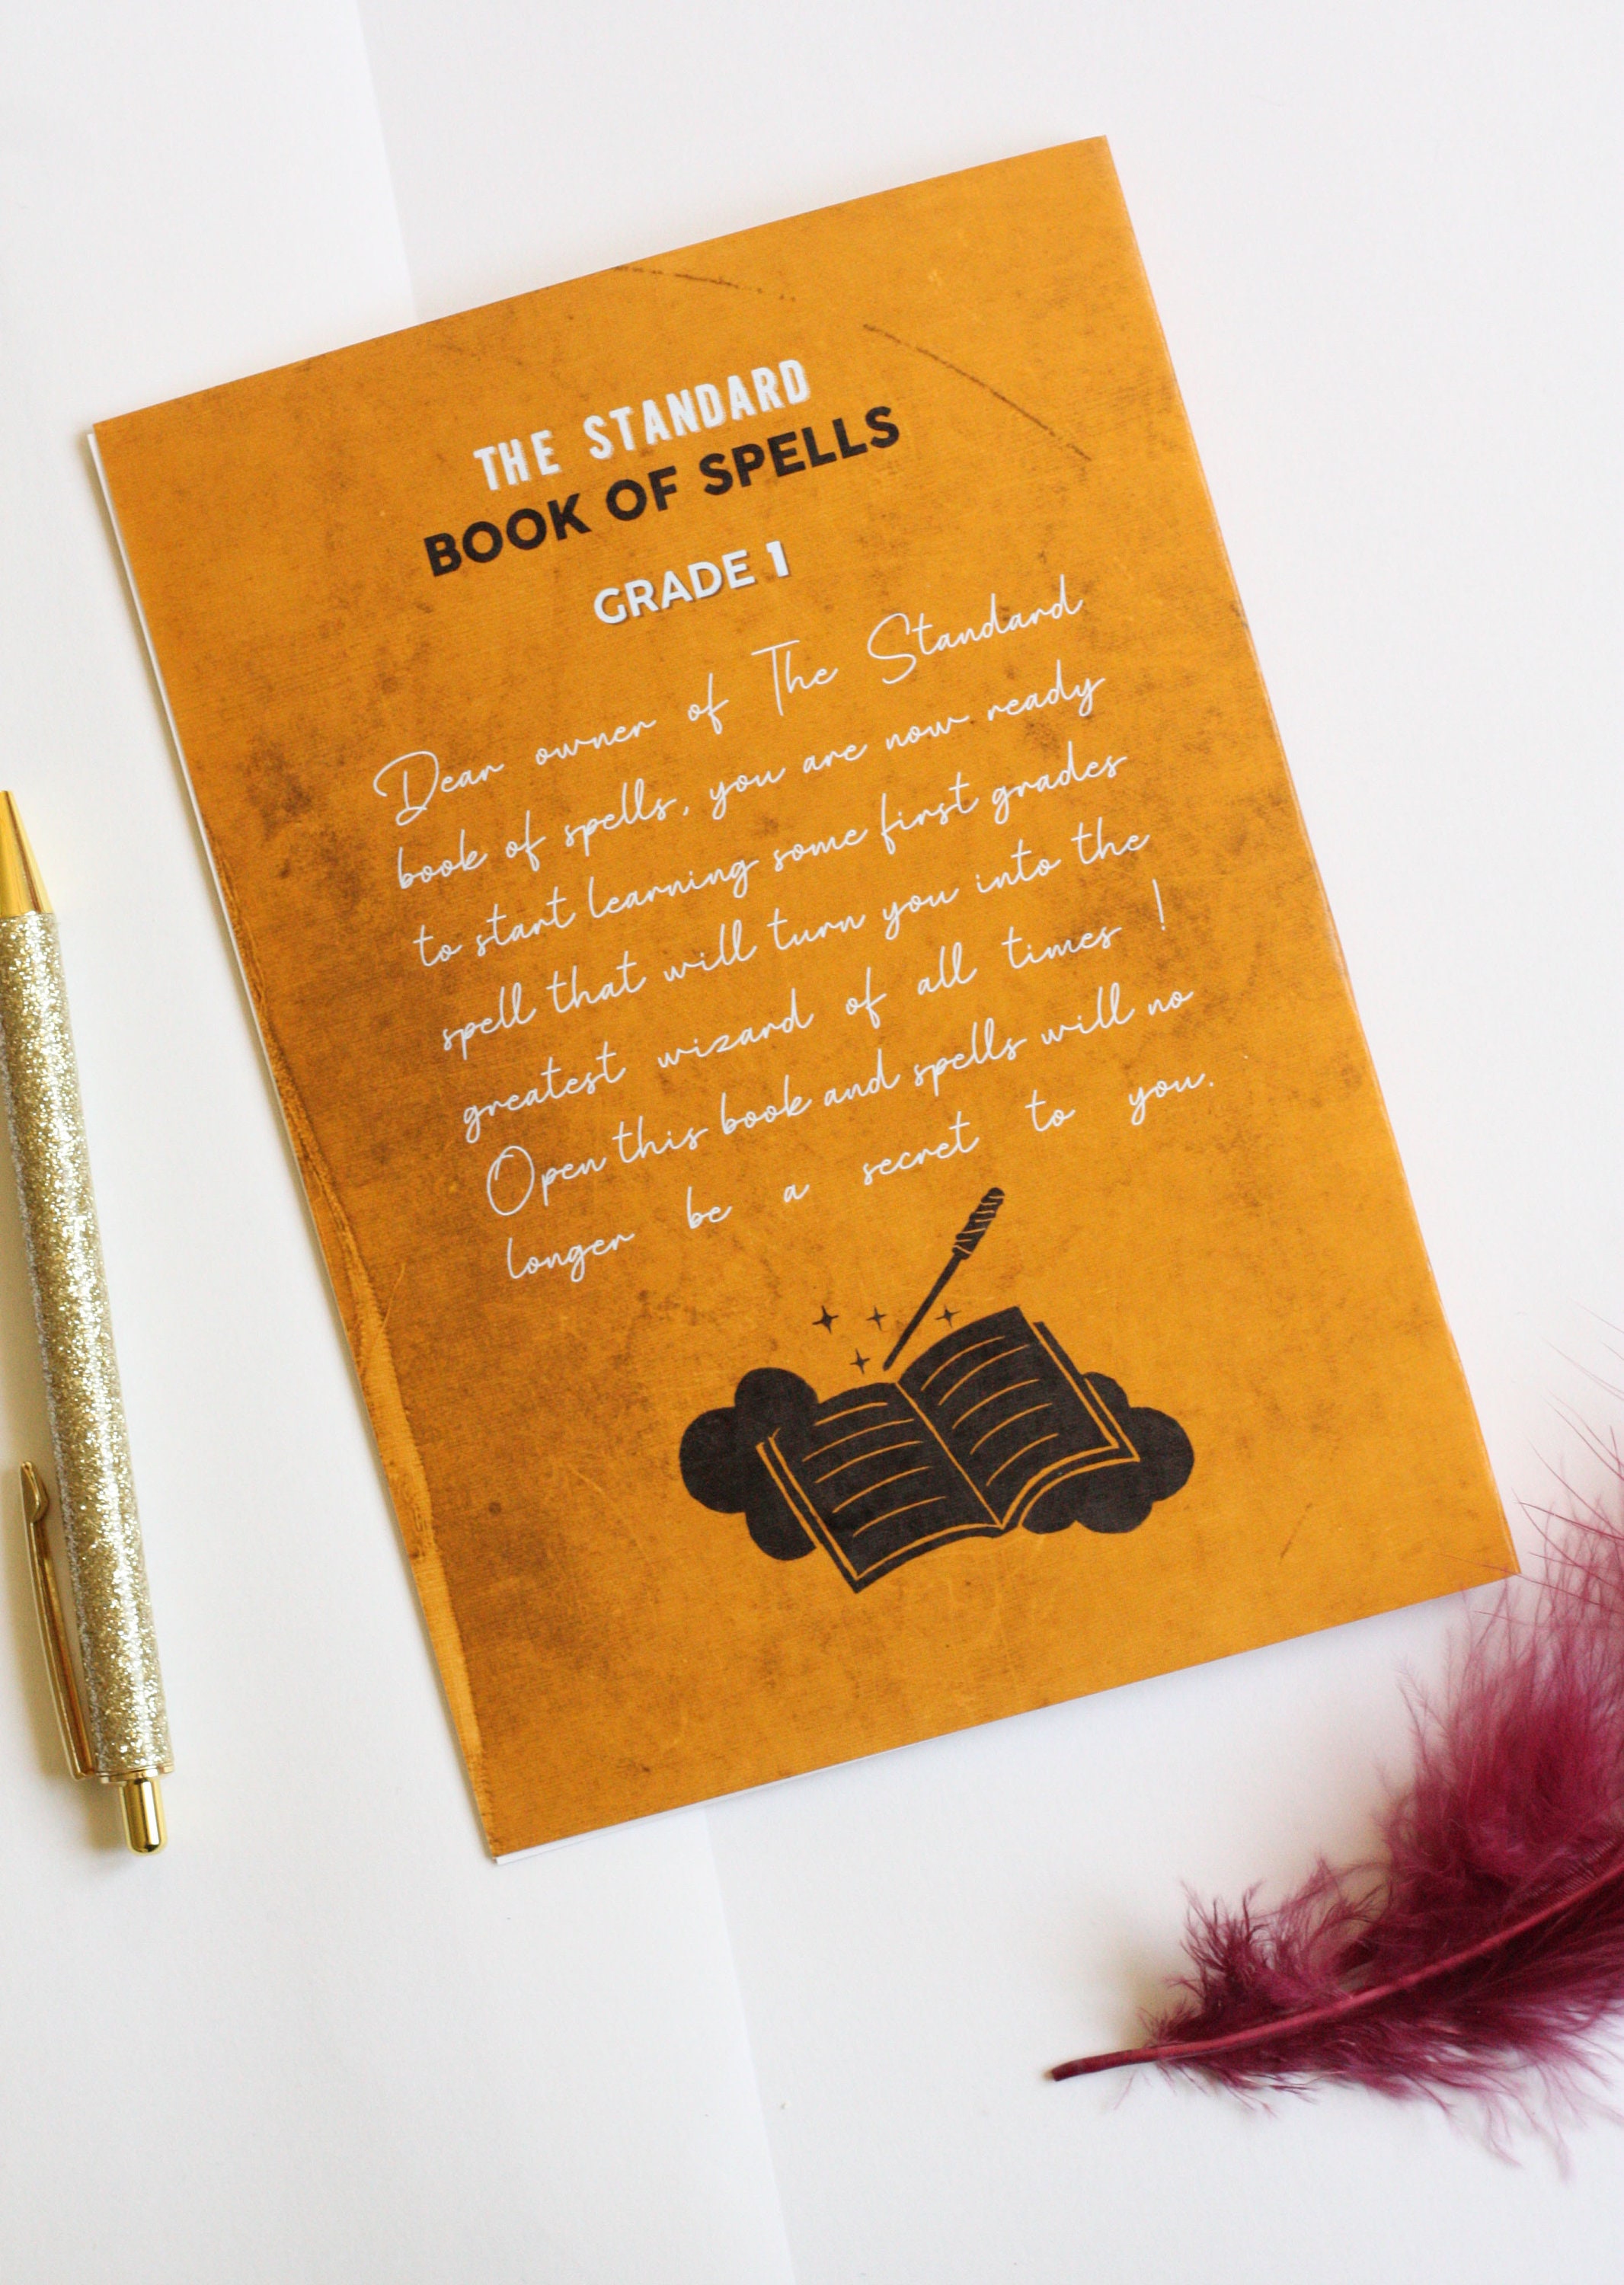 THE STANDARD
BOOK OF SPELLS
GRADE 1
Dear owner of The Standard
book of spells, you are now ready
to start learning some first grades
spell that will turn you into the
greatest wizard of all times !
Open this book and spells will no
longer be a secret to you.